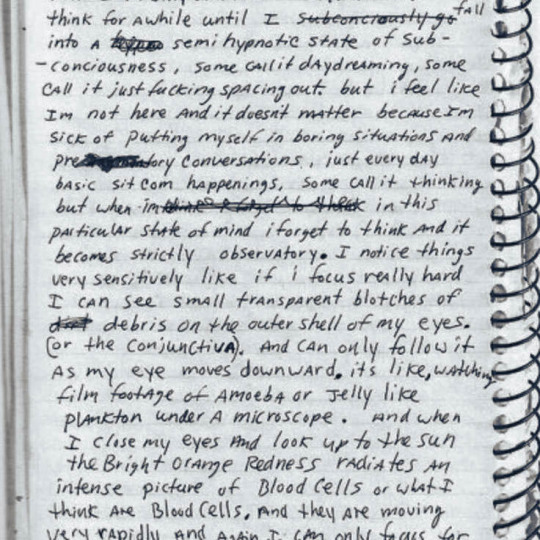 think for Awhile until I subconciously go fall
into A semi hypnotic state of sub-
-conciousness, some call it daydreaming, some
call it just fucking spacing out. but i feel like
Im not here And it doesn't matter because Im
sick of putting myself in boring situations And
pre tory conversations, just every day
basic sit com happenings. some call it thinking
but when im think I forget to think in this
particular state of mind i forget to think And it
becomes strictly observatory. I notice things
very sensitively like if i focus really hard
I can see small transparent blotches of
debris on the outer shell of my eyes.
(or the conjunctiva). And can only follow it
As my eye moves downward. it's like, watching
film footage of Amoeba or Jelly like
plankton under A microscope. And when
I close my eyes And look up to the sun
the Bright Orange Redness radiates An
intense picture of Blood Cells or what I
think Are Blood Cells. And they are moving
very rapidly And again I can only focus for